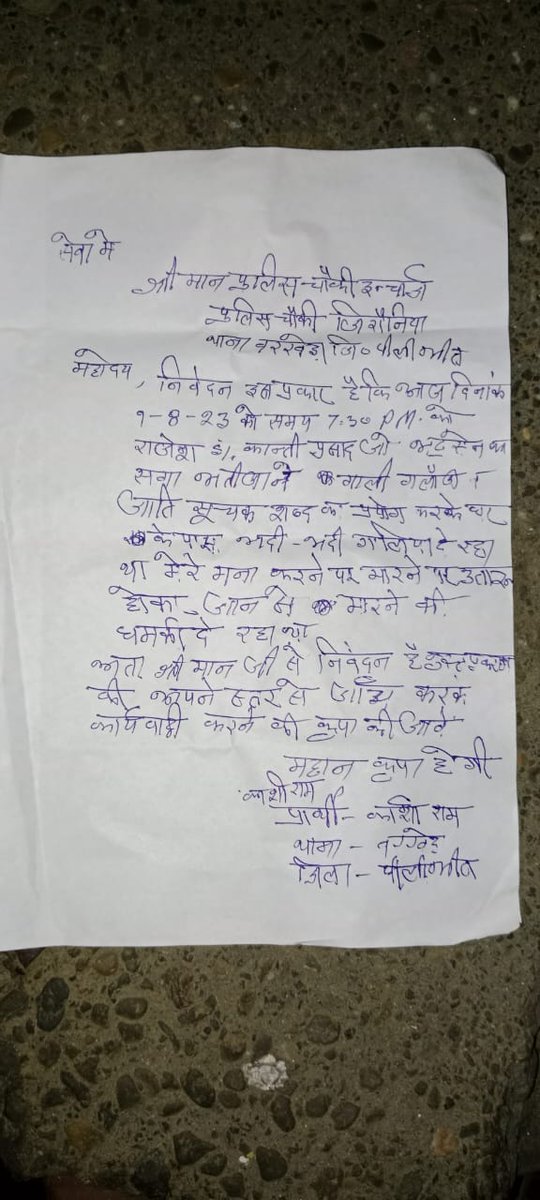 सेवा में
श्री मान पुलिस-चौकी इन्चार्ज
पुलिस चौकी
थाना जि० पीलीभीत
महोदय, निवेदन इस प्रकार है कि आज दिनांक
1-8-23 को समय 7:30 P.M. को
राजेश कान्ती प्रसाद जो
सगा भतीजा ने गाली गलौज
जाति सूचक शब्द का प्रयोग करके घर
के पास भद्दी-भद्दी दे रहा
था मेरे मना करने पर मारने पर
होकर जान से मारने की
धमकी दे रहा था
अतः श्री मान जी से निवेदन है
की अपने स्तर से जाँच करके
कार्यवाही करने की कृपा की जावे
महान कृपा होगी
काशीराम
प्रार्थी - काशी राम
थाना -
जिला - पीलीभीत